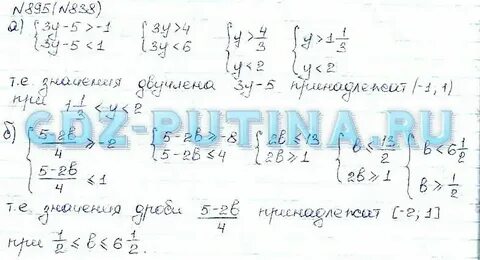 N895(N838)
а) {3y-5>-1 {3y>4 {y>4/3 {y>1 1/3
{3y-5<1 {3y<6 {y<2 {y<2
т.е. значения двучлена 3y-5 принадлежат (-1,1)
при 1 1/3 < y < 2
GDZ-PUTINA.RU
б) {5-2b/4 ≥ -2 {5-2b ≥ -8 {2b ≤ 13 {b ≤ 13/2 {b ≤ 6 1/2
{5-2b/4 ≤ 1 {5-2b ≤ 4 {2b ≥ 1 {2b ≥ 1 {b ≥ 1/2
т.е. значения дроби 5-2b/4 принадлежат [-2,1]
при 1/2 ≤ b ≤ 6 1/2.